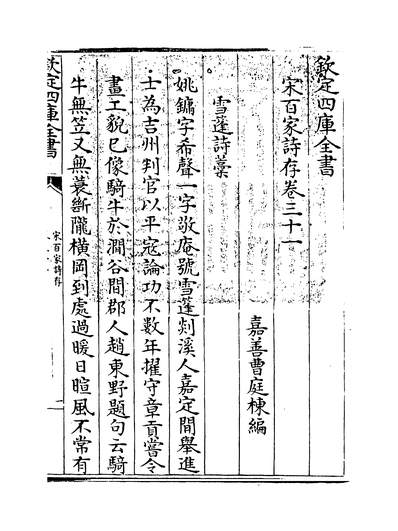 欽定四庫全書
宋百家詩存卷三十一
嘉善曹庭棟編
雪蓬詩藁
姚鏞字希聲一字敬庵號雪蓬剡溪人嘉定間舉進
士為吉州判官以平寇論功不數年擢守章貢嘗令
畫工貌已像騎牛於澗谷間郡人趙東野題句云騎
牛無笠又無蓑斷隴橫岡到處過暖日暄風不常有
欽定四庫全書
宋百家詩存